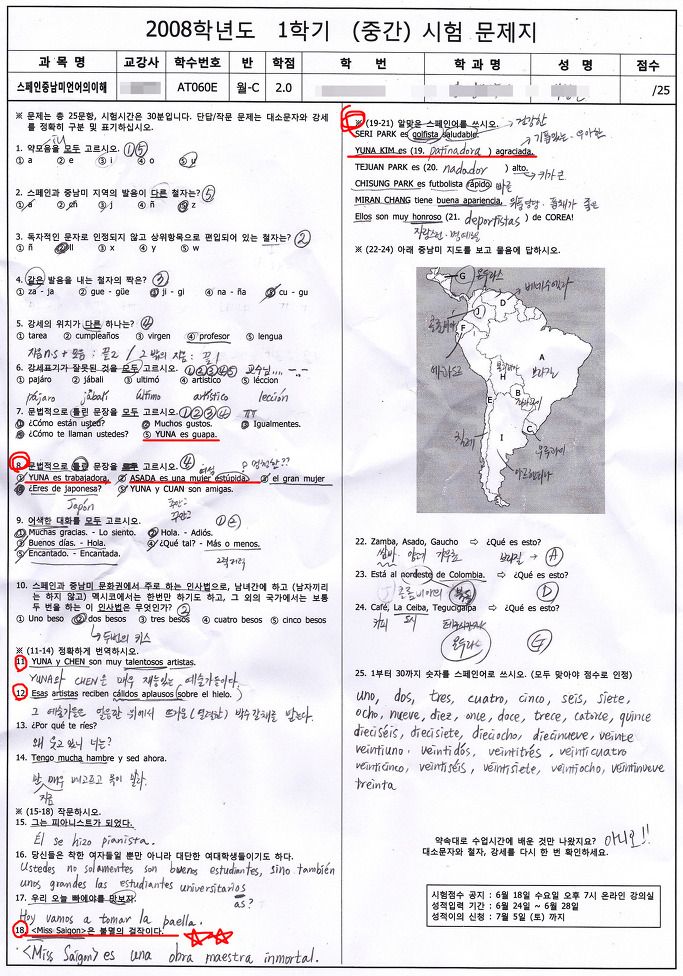 2008학년도 1학기 (중간) 시험 문제지
과 목 명 교강사 학수번호 반 학점 학 번 학 과 명 성 명 점수
스페인중남미언어의이해 AT060E 월-C 2.0 /25
※ 문제는 총 25문항, 시험시간은 30분입니다. 단답/작문 문제는 대소문자와 강세
를 정확히 구분 및 표기하십시오.
1. 약모음을 모두 고르시오. ①⑤
① a ② e ③ i ④ o ⑤ u
2. 스페인과 중남미 지역의 발음이 다른 철자는? ⑤
① a ② ch ③ j ④ ñ ⑤ z
3. 독자적인 문자로 인정되지 않고 상위항목으로 편입되어 있는 철자는? ②
① ñ ② ll ③ x ④ y ⑤ w
4. 같은 발음을 내는 철자의 짝은? ③
① za - ja ② gue - güe ③ ji - gi ④ na - ña ⑤ cu - gu
5. 강세의 위치가 다른 하나는? ④
① tarea ② cumpleaños ③ virgen ④ profesor ⑤ lengua
자음 n.s + 모음 : 끝2 / 그 밖의 자음 : 끝1
6. 강세표기가 잘못된 것을 모두 고르시오. ①②③④⑤ 교수님...
① pajáro ② jábali ③ ultimó ④ artistico ⑤ léccion
pájaro jabalí último artístico lección
7. 문법적으로 틀린 문장을 모두 고르시오. ①②③④ ㅠㅠ
① ¿Cómo están usted? ② Muchos gustos. ③ Igualmentes.
④ ¿Cómo te llaman ustedes? ⑤ YUNA es guapa.
8. 문법적으로 틀린 문장을 모두 고르시오. ④
① YUNA es trabajadora. ② ASADA es una mujer estúpida. ③ el gran mujer
④ ¿Eres de japonesa? ⑤ YUNA y CUAN son amigas.
Japón
9. 어색한 대화를 모두 고르시오.
① Muchas gracias. - Lo siento. ② Hola. - Adiós.
③ Buenos días. - Hola. ④ ¿Qué tal? - Más o menos.
⑤ Encantado. - Encantada. 그럭저럭
10. 스페인과 중남미 문화권에서 주로 하는 인사법으로, 남녀간에 하고 (남자끼리
는 하지 않고) 멕시코에서는 한번만 하기도 하고, 그 외의 국가에서는 보통
두 번을 하는 이 인사법은 무엇인가? ②
① Uno beso ② dos besos ③ tres besos ④ cuatro besos ⑤ cinco besos
두번의 키스
※ (11-14) 정확하게 번역하시오.
11. YUNA y CHEN son muy talentosos artistas.
YUNA와 CHEN은 매우 재능있는 예술가들이다.
12. Esas artistas reciben cálidos aplausos sobre el hielo.
그 예술가들은 얼음판 위에서 뜨거운(열렬한) 박수갈채를 받는다.
13. ¿Por qué te ríes?
왜 웃고 있니 너는?
14. Tengo mucha hambre y sed ahora.
난 매우 배고프고 목이 말라.
지금
※ (15-18) 작문하시오.
15. 그는 피아니스트가 되었다.
Él se hizo pianista.
16. 당신들은 착한 여자들일 뿐만 아니라 대단한 여대학생들이기도 하다.
Ustedes no solamentes son buenos estudiantes, sino también
unos grandes las estudiantes universitarios
as?
17. 우리 오늘 빠에야를 맛보자.
Hoy vamos a tomar la paella.
18. <Miss Saigon>은 불멸의 걸작이다.
<Miss Saigon> es una obra maestra inmortal.
※ (19-21) 알맞은 스페인어를 쓰시오. → 건강한
SERI PARK es golfista saludable.
YUNA KIM es (19. patinadora ) agraciada.
TEJUAN PARK es (20. nadador ) alto. → 키가 큰
CHISUNG PARK es futbolista rápido. 빠른
MIRAN CHANG tiene buena apariencia.
Ellos son muy honroso (21. deportistas ) de COREA!
※ (22-24) 아래 중남미 지도를 보고 물음에 답하시오.
G 온두라스
D 베네수엘라
J 콜롬비아
F 에콰도르
A 브라질
H 볼리비아
B 파라과이
E 칠레
C 우루과이
I 아르헨티나
22. Zamba, Asado, Gaucho ⇨ ¿Qué es esto?
브라질 → A
23. Está al nordeste de Colombia. ⇨ ¿Qué es esto?
콜롬비아의 북동 D
24. Café, La Ceiba, Tegucigalpa ⇨ ¿Qué es esto?
커피 도시
온두라스 G
25. 1부터 30까지 숫자를 스페인어로 쓰시오. (모두 맞아야 점수로 인정)
uno, dos, tres, cuatro, cinco, seis, siete,
ocho, nueve, diez, once, doce, trece, catorce, quince
dieciséis, diecisiete, dieciocho, diecinueve, veinte
veintiuno, veintidós, veintitrés, veinticuatro
veinticinco, veintiséis, veintisiete, veintiocho, veintinueve
treinta
약속대로 수업시간에 배운 것만 나왔지요? 아니오!!
대소문자와 철자, 강세를 다시 한 번 확인하세요.
시험점수 공지 : 6월 18일 수요일 오후 7시 온라인 강의실
성적입력 기간 : 6월 24일 ~ 6월 28일
성적이의 신청 : 7월 5일 (토) 까지